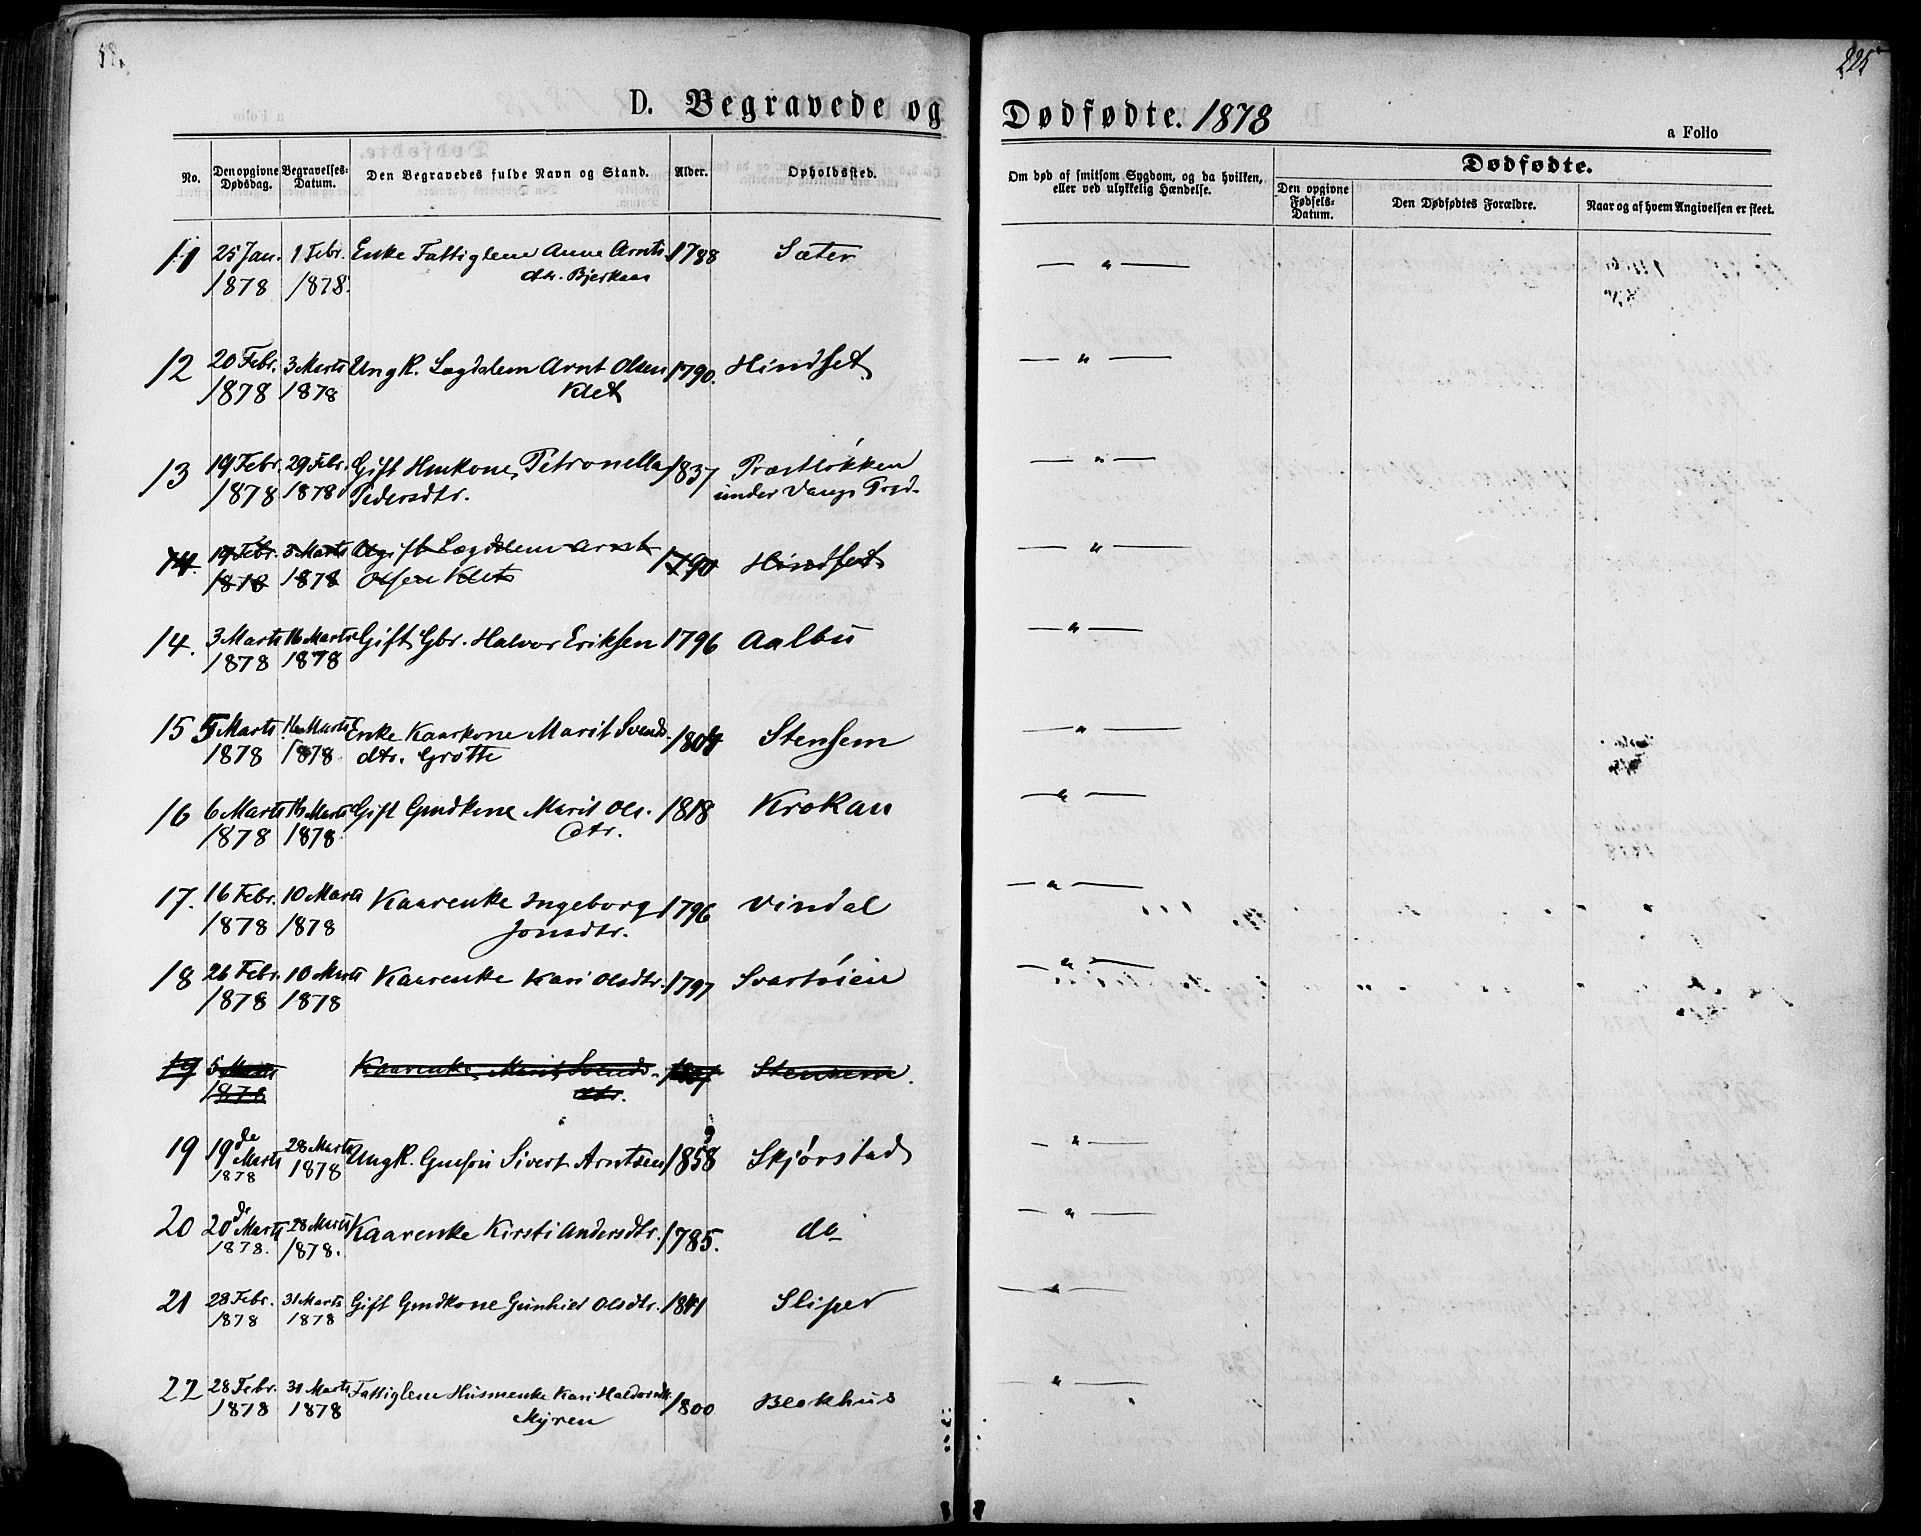 225
D. Begravede og Dødfødte. 1878
a Folio
No.
Den opgivne Dødsdag.
Begravelses-Datum.
Den Begravedes fulde Navn og Stand.
Alder.
Opholdssted.
Om død af smitsom Sygdom, og da hvilken, eller ved ulykkelig Hændelse.
Dødfødte.
Den opgivne Fødsels-Datum.
Den Dødfødtes Forældre.
Naar og af hvem Angivelsen er skeet.
11 25 Jan. 1 Febr. Enke Fattiglem Anne Arnts 1788 Sæter — " —
1878 1878. dtr. Bjerkaas
12 20 Febr. 3 Marts Ungk. Lægdslem Arnt Olsen 1790. Hindset — " —
1878 1878 Klet
13 19 Febr. 29 Febr. Gift Hmkone Petronella 1837 Præstløkken — " —
1878 1878 Pedersdtr. under Vangs Præd.
14. 19 Febr. 3 Marts Ugift Lægdslem Arnt 1790 Hindset — " —
1878 1878 Olsen Klet
14. 3 Marts 16 Marts Gift Gbr. Halvor Eriksen 1796 Aalbu — " —
1878 1878
15 5 Marts 16 Marts Enke Kaarkone Marit Svends 1804 Stensem — " —
1878 1878 dtr. Grøtte
16 6 Marts 16 Marts Gift Gmdkone Marit Ols. 1818 Krokan — " —
1878 1878 dtr.
17. 16 Febr. 10 Marts Kaarenke Ingeborg 1796 Vindal — " —
1878 1878 Jonsdtr.
18 26 Febr. 10 Marts Kaarenke Kari Olsdtr. 1797 Svartøien — " —
1878 1878
19 5 Marts Kaarenke Marit Svends Stensem.
1878 dtr.
19 19de Marts 28 Marts Ungk. Gmsøn Sivert Arntsen 1858 Skjørstad — " —
1878 1878
20 20de Marts 28 Marts Kaarenke Kirsti Andersdtr. 1785. do — " —
1878. 1878.
21 28 Febr. 31 Marts Gift Gmdkone Gunhild Olsdtr. 1841 Sliper — " —
1878 1878
22 28 Febr. 31 Marts Fattiglem Husmenke Kari Haldorsdtr. 1800 Blokhus — " —
1878 1878 Myren